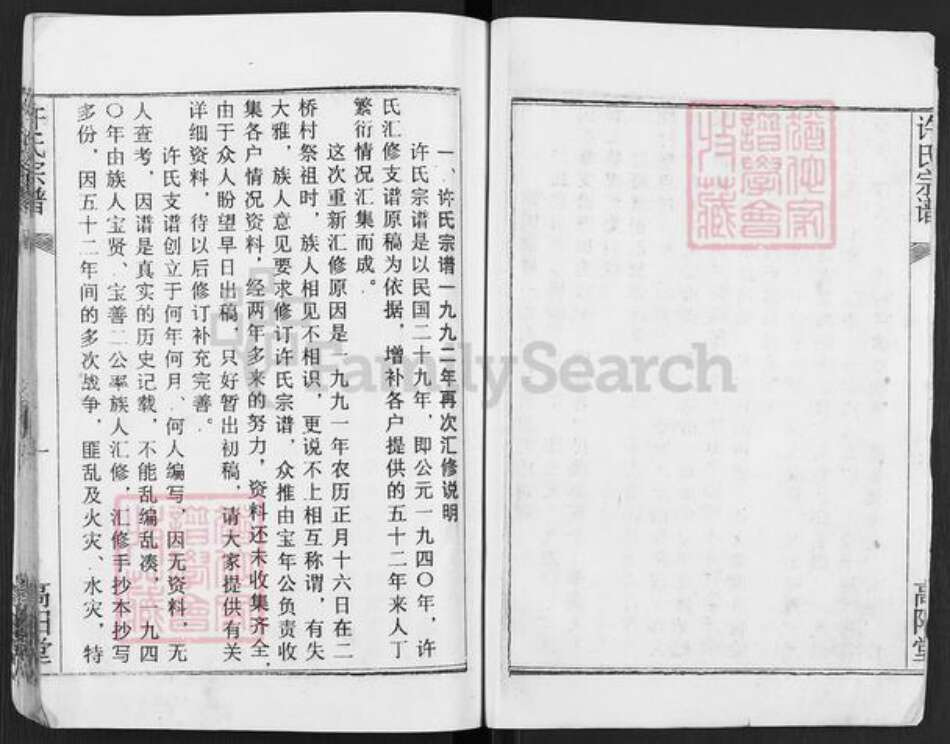 许氏宗谱
高阳堂
一、许氏宗谱一九九二年再次汇修说明
许氏宗谱是以民国二十九年，即公元一九四〇年，许
氏汇修支谱原稿为依据，增补各户提供的五十二年来人丁
繁衍情况汇集而成。
这次重新汇修原因是一九九一年农历正月十六日在二
桥村祭祖时，族人相见不相识，更说不上相互称谓，有失
大雅，族人意见要求修订许氏宗谱，众推由宝年公负责收
集各户情况资料，经两年多来的努力，资料还未收集齐全，
由于众人盼望早日出稿，只好暂出初稿，请大家提供有关
详细资料，待以后修订补充完善。
许氏支谱创立于何年何月、何人编写，因无资料，无
人查考，因谱是真实的历史记载，不能乱编乱凑，一九四
〇年由族人宝贤、宝善二公率族人汇修，汇修手抄本抄写
多份，因五十二年间的多次战争，匪乱及火灾、水灾，特
许氏宗谱
一
高阳堂
FamilySearch